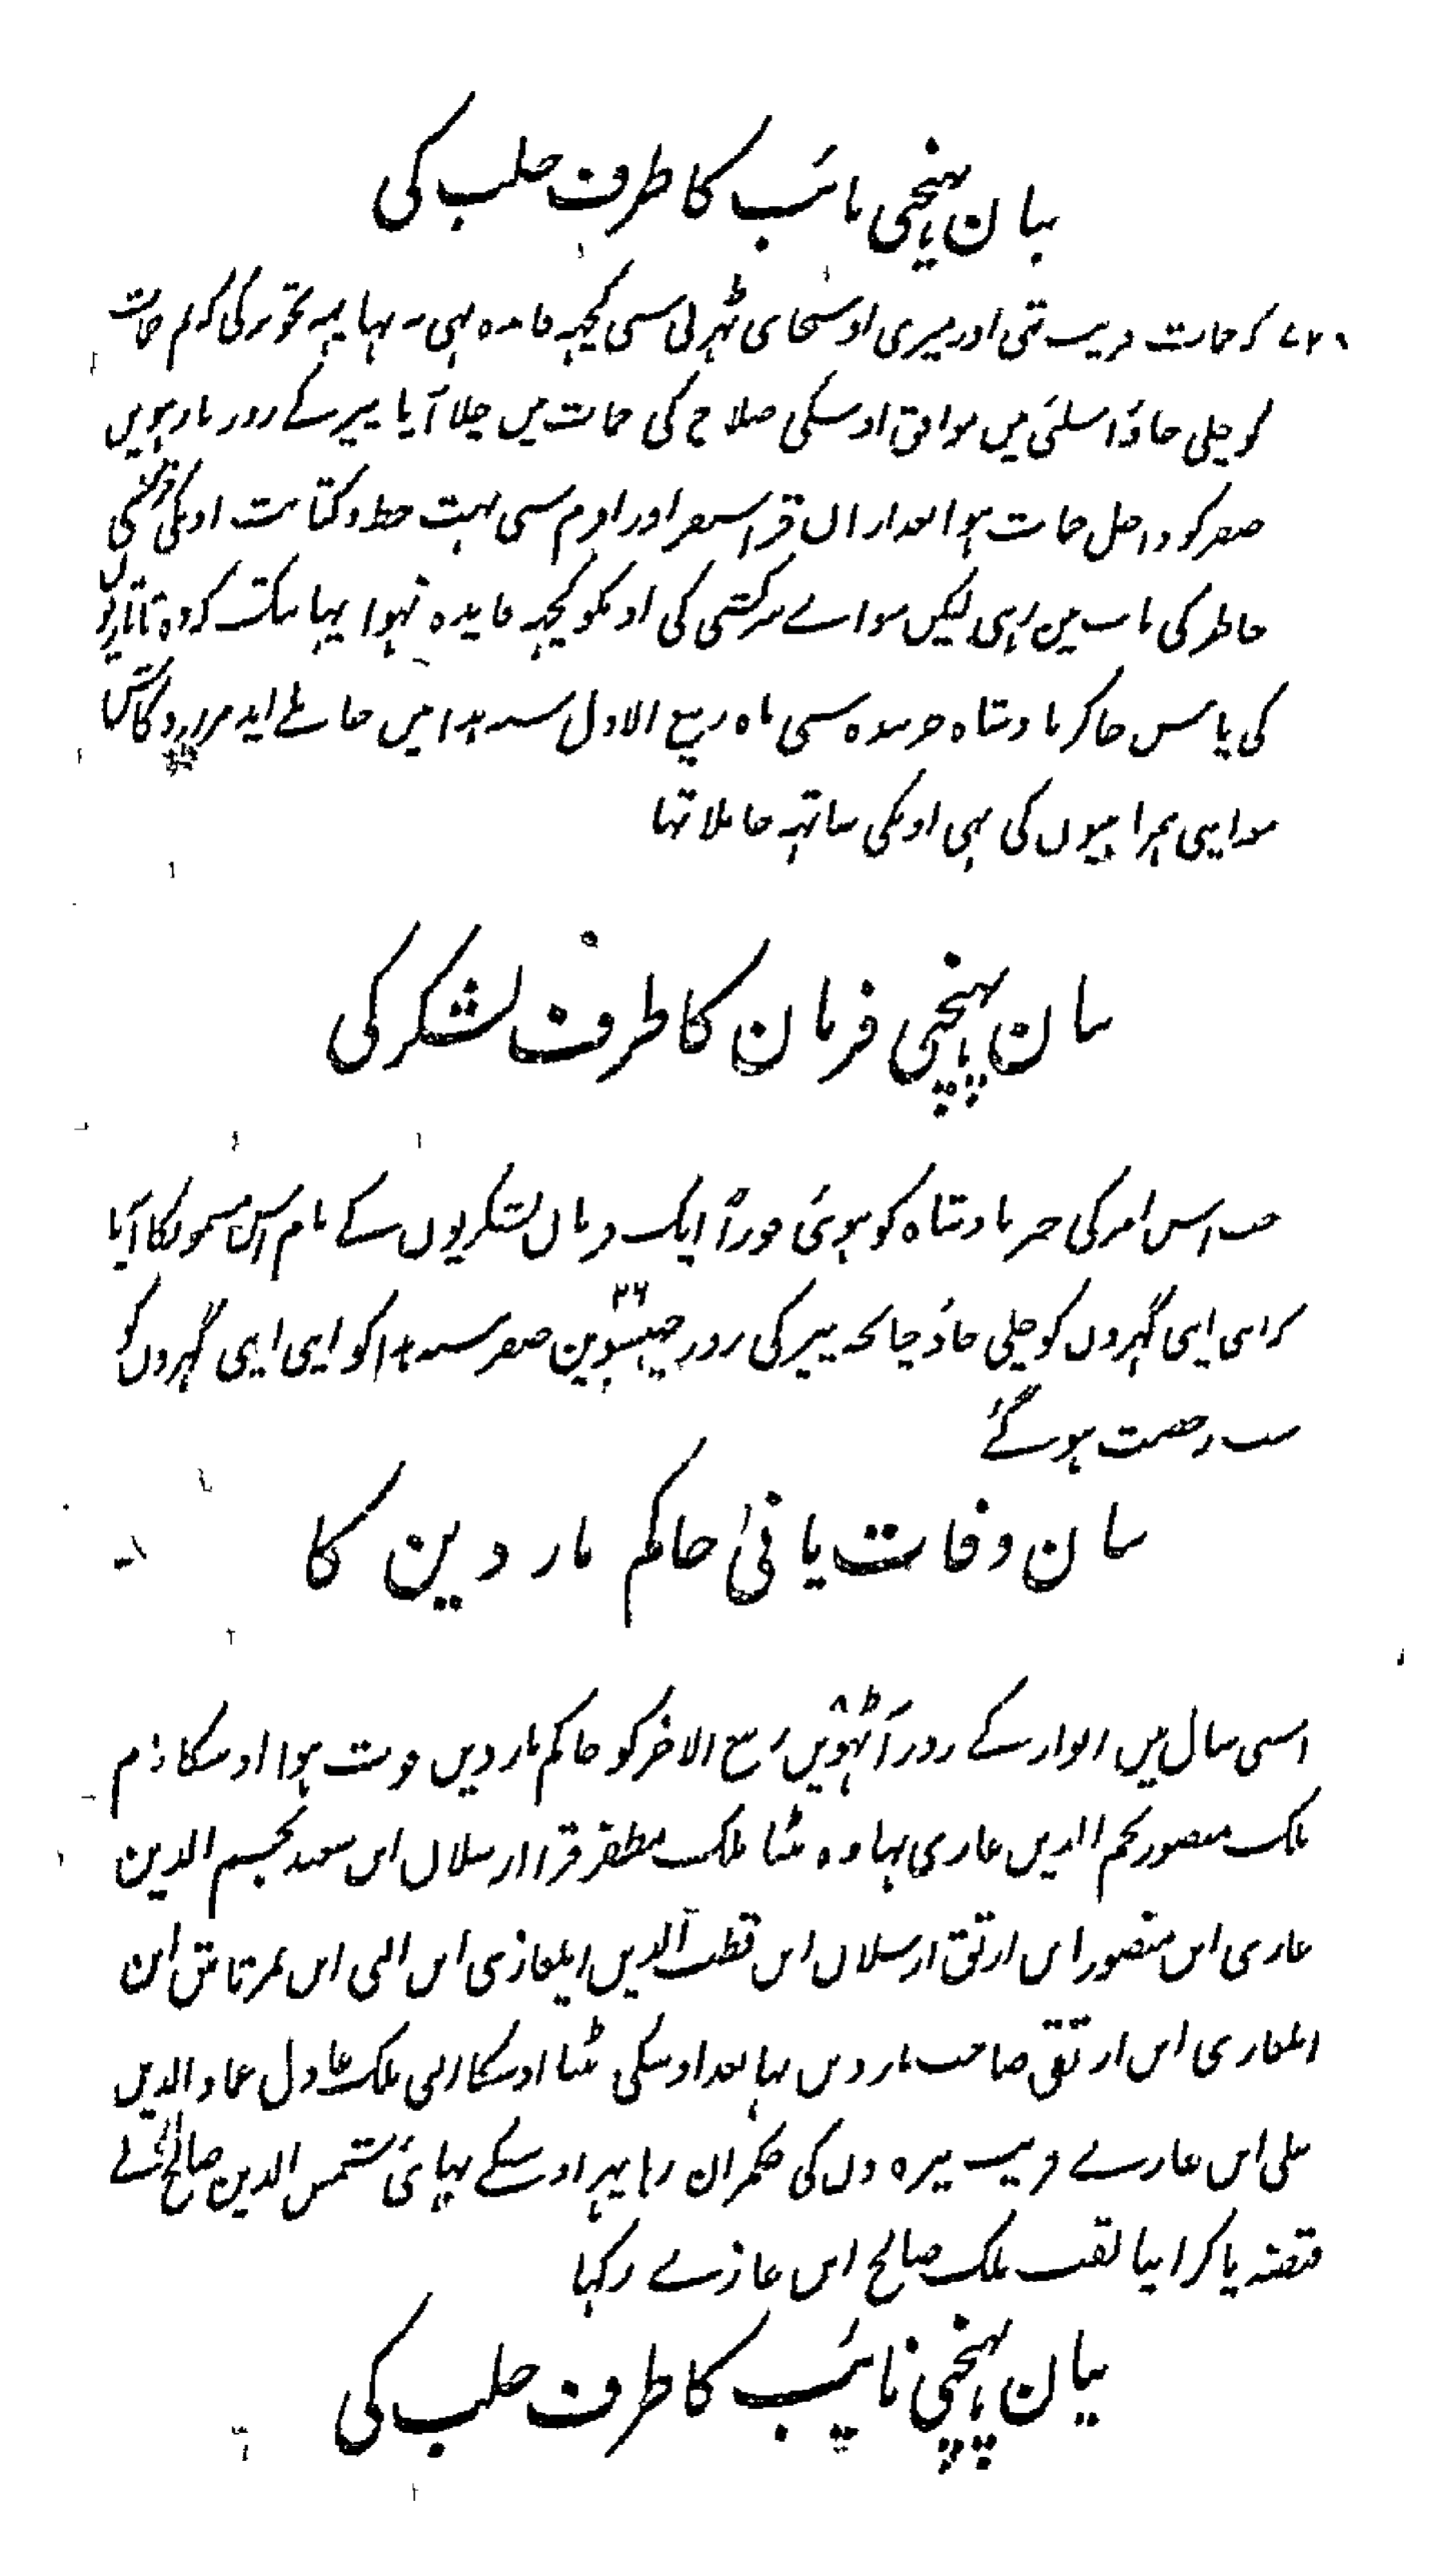 بیان پہنچی نائب کا طرف حلب کی
۷۲۰ کہ حمات قریب تھی اور میری اوسجای ٹہرنی سی کچہہ فائدہ بھی نہ تہا یہہ تجویز کی کہ تم حمات
کو چلی جاؤ اسلئی میں موافق اوسکی صلاح کی حمات میں چلا آیا پیر کے روز
صفر کو داخل حمات ہوا بعد ازاں قراسنقر اور اورم سی بہت خط و کتابت اونکی تشفی
خاطر کی باب مین رہی لیکن سواے سرکشی کی اونکو کچہہ فایدہ نہوا یہانتک کہ وہ تاتاریوں
کی پاس جاکر بادشاہ خربندہ سی ماہ ربیع الاول سنہ میں جا ملے ایدمر زردکاش
سوای ہمراہیوں کی بھی اونکی ساتہہ جا ملا تہا
بیان پہنچی فرمان کا طرف لشکر کی
جب اس امر کی خبر بادشاہ کو ہوئی فوراً ایک فرمان لشکریوں کے نام اس مضمونکا آیا
کہ اپنی اپنی گہروں کو چلی جاؤ چنانچہ پیر کی روز چہبیسوین ۲۶ صفر سنہ کو اپنی اپنی گہروں کو
سب رخصت ہو گئے
بیان وفات پانی حاکم ماردین کا
اسی سال میں اتوار کے روز آٹھویں ۸ ربیع الاخر کو حاکم ماردین فوت ہوا اوسکا نام
ملک منصور نجم الدین غازی تہا وہ بیٹا ملک مظفر قرا ارسلان ابن سعید نجم الدین
غازی ابن منصور ابن ارتق ارسلان ابن قطب الدین ایلغازی ابن البی ابن تمرتاش ابن
ایلغازی ابن ارتق صاحب ماردین تہا بعد اوسکی بیٹا اوسکا البی ملک عادل عماد الدین
علی ابن غازے قریب تیرہ دن کی حکمران رہا پہر اوسکے بہائی شمس الدین صالح نے
قبضہ پا کر اپنا لقب ملک صالح ابن غازے رکہا
بیان پہنچی نایب کا طرف حلب کی